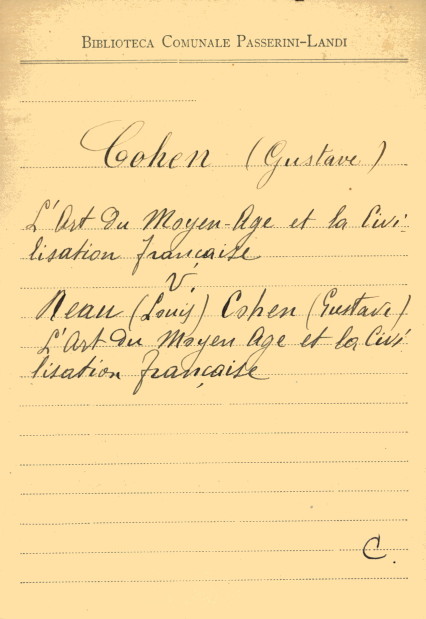 BIBLIOTECA COMUNALE PASSERINI-LANDI
Cohen (Gustave)
L'Art du Moyen-Age et la Civi-
lisation française
V.
Reau (Louis) Cohen (Gustave)
L'Art du Moyen Age et la Civi
lisation française
C.